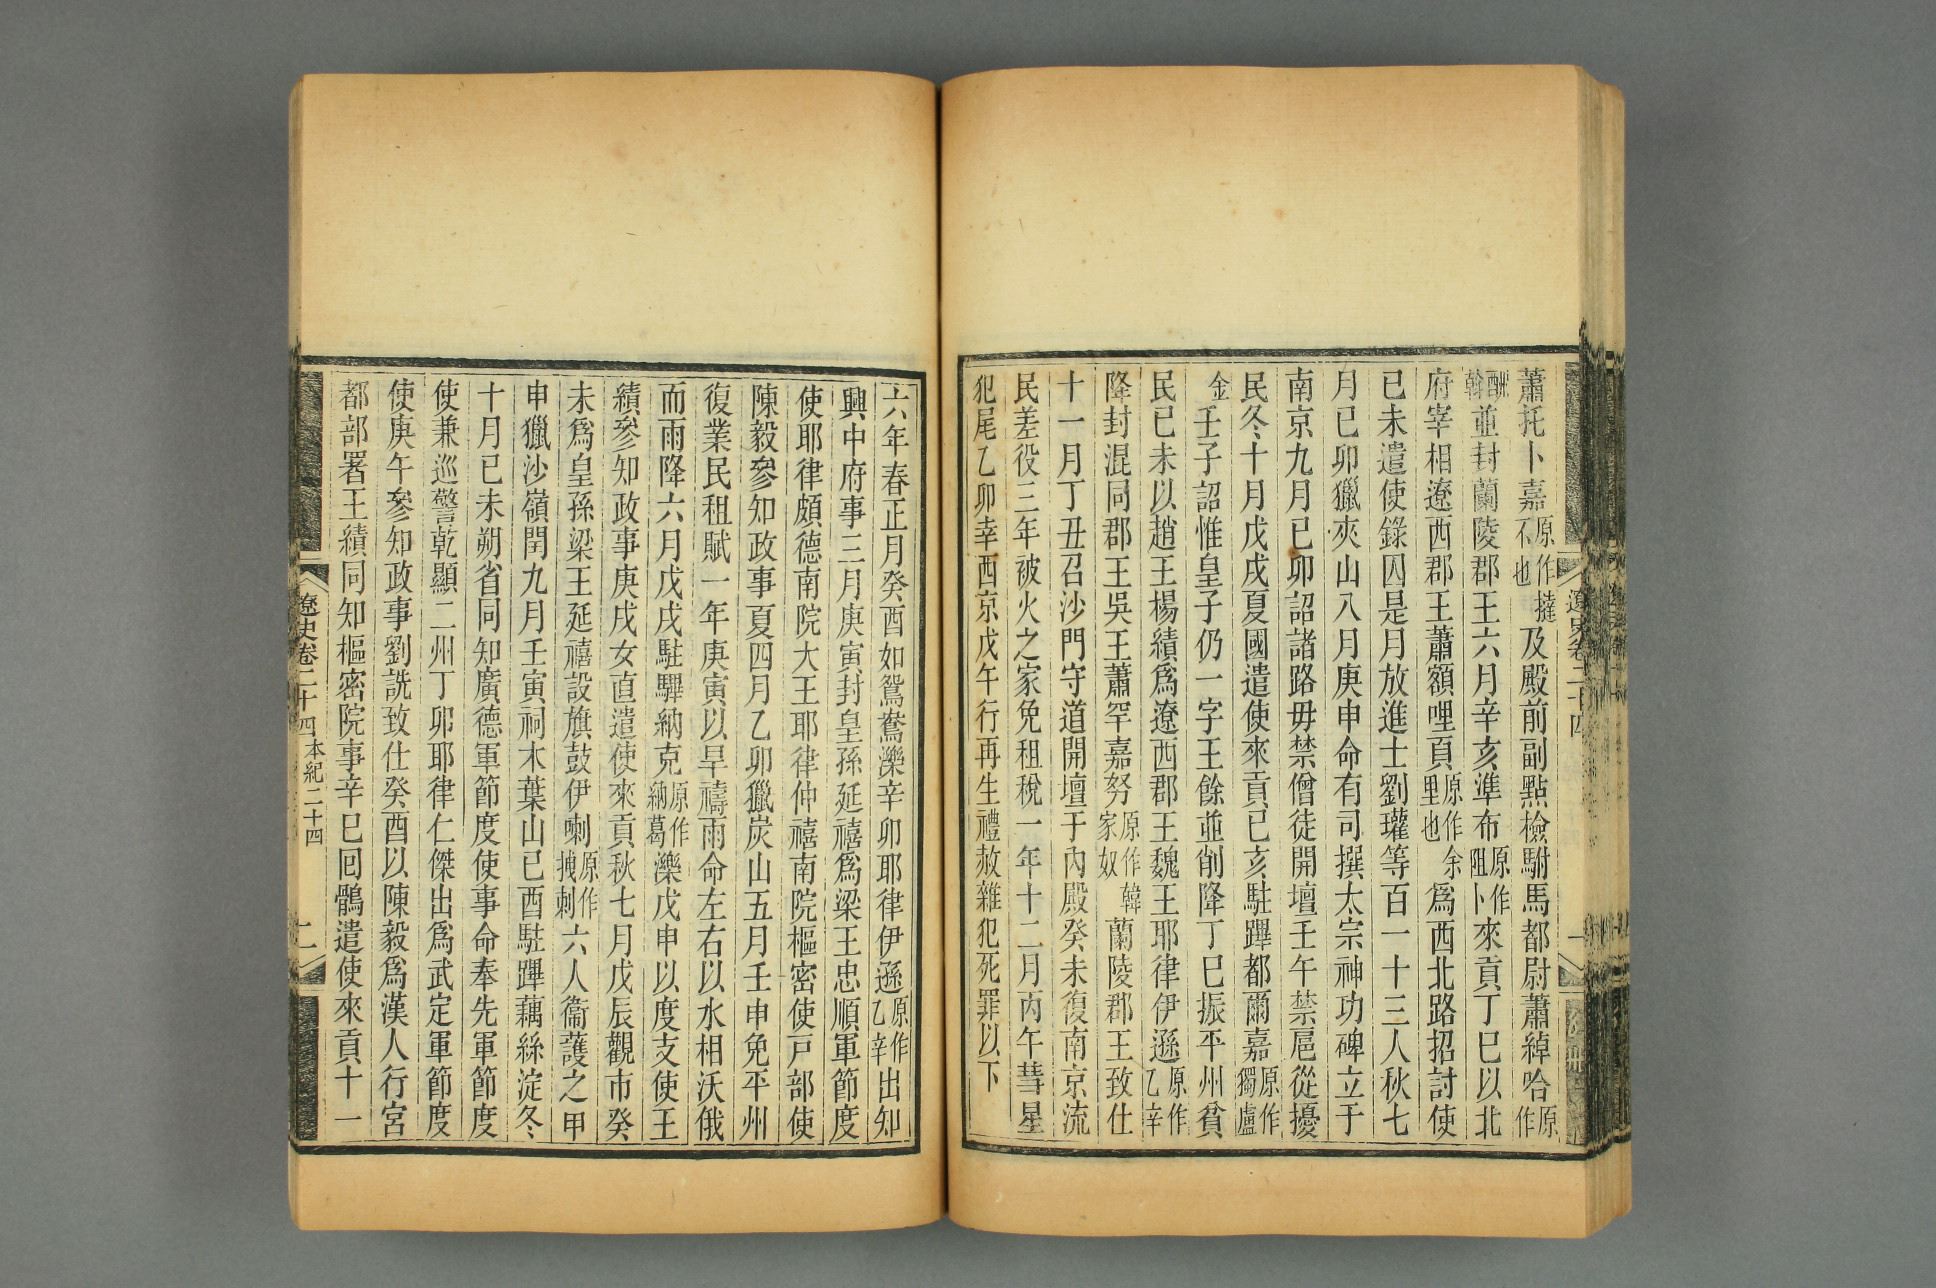 蕭托卜嘉原作撻不也及殿前副點檢駙馬都尉蕭綽哈原作
酬斡並封蘭陵郡王六月辛亥準布原作阻卜來貢丁巳以北
府宰相遼西郡王蕭額哩頁原作余里也爲西北路招討使
己未遣使錄囚是月放進士劉瓘等百一十三人秋七
月己卯獵夾山八月庚申命有司撰太宗神功碑立于
南京九月己卯詔諸路毋禁僧徒開壇壬午禁扈從擾
民冬十月戊戌夏國遣使來貢己亥駐蹕都爾嘉原作獨盧
金壬子詔惟皇子仍一字王餘並削降丁巳振平州貧
民己未以趙王楊績爲遼西郡王魏王耶律伊遜原作乙辛
降封混同郡王吳王蕭罕嘉努原作韓家奴蘭陵郡王致仕
十一月丁丑召沙門守道開壇于內殿癸未復南京流
民差役三年被火之家免租稅一年十二月丙午彗星
犯尾乙卯幸西京戊午行再生禮赦雜犯死罪以下
六年春正月癸酉如鴛鴦濼辛卯耶律伊遜原作乙辛出知
興中府事三月庚寅封皇孫延禧爲梁王忠順軍節度
使耶律頗德南院大王耶律仲禧南院樞密使戸部使
陳毅參知政事夏四月乙卯獵炭山五月壬申免平州
復業民租賦一年庚寅以旱禱雨命左右以水相沃俄
而雨降六月戊戌駐驆納克原作納葛濼戊申以度支使王
績參知政事庚戌女直遣使來貢秋七月戊辰觀市癸
未爲皇孫梁王延禧設旗鼓伊喇原作拽剌六人衞護之甲
申獵沙嶺閏九月壬寅祠木葉山己酉駐蹕藕絲淀冬
十月己未朔省同知廣德軍節度使事命奉先軍節度
使兼巡警乾顯二州丁卯耶律仁傑出爲武定軍節度
使庚午參知政事劉詵致仕癸酉以陳毅爲漢人行宮
都部署王績同知樞密院事辛巳回鶻遣使來貢十一
遼史卷二十四 本紀二十四 二